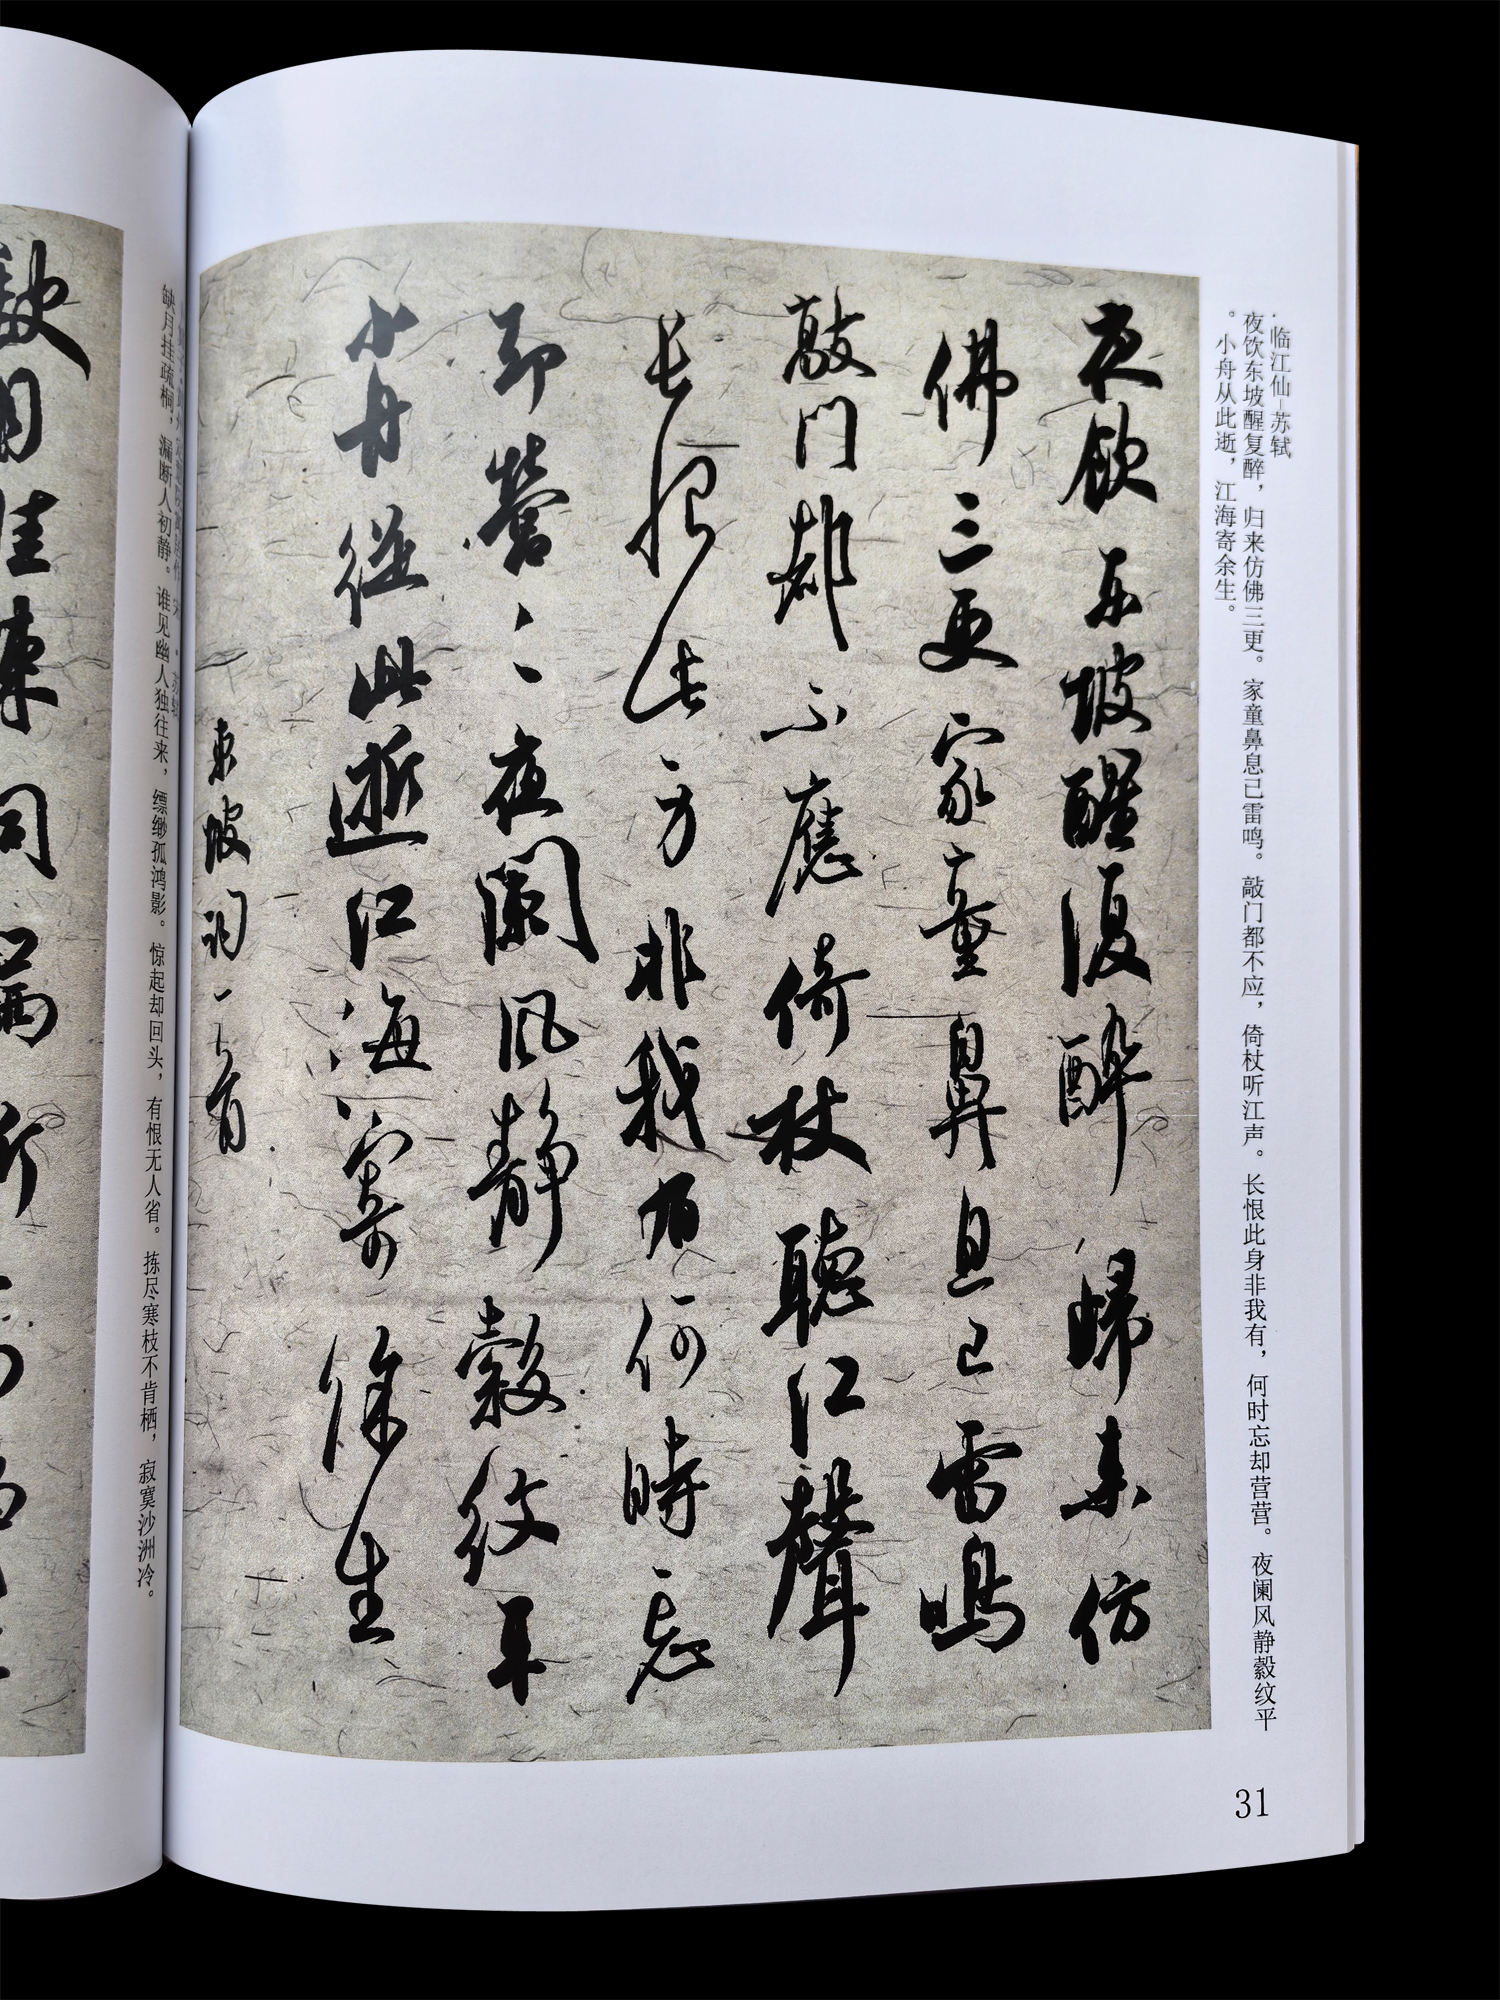 ·临江仙—苏轼
夜饮东坡醒复醉，归来仿佛三更。家童鼻息已雷鸣。敲门都不应，倚杖听江声。长恨此身非我有，何时忘却营营。夜阑风静縠纹平
。小舟从此逝，江海寄余生。
夜飲东坡醒復醉歸来仿
佛三更家童鼻息已雷鳴
敲门都不應倚杖聽江聲
长恨此身非我有何時忘
却營〻夜闌风静縠纹平
小舟從此逝江海寄餘生
東坡词一首
31
缺月挂疏桐，漏断人初静。谁见幽人独往来，缥缈孤鸿影。惊起却回头，有恨无人省。拣尽寒枝不肯栖，寂寞沙洲冷。